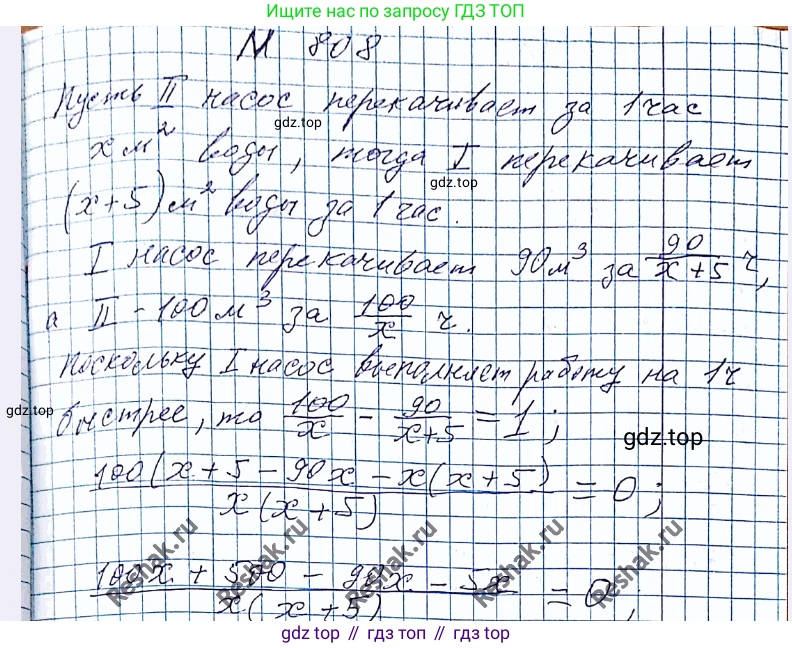 Ищите нас по запросу ГДЗ ТОП
N 808
Пусть II насос перекачивает за 1 час
gdz.top
x м² воды, тогда I перекачивает
gdz.top
(x+5) м² воды за 1 час.
I насос перекачивает 90 м³ за 90/(x+5) ч,
а II - 100 м³ за 100/x ч.
Поскольку I насос выполняет работу на 1 ч
gdz.top
быстрее, то 100/x - 90/(x+5) = 1;
gdz.top
100(x+5 - 90x - x(x+5) / x(x+5) = 0;
Reshak.ru Reshak.ru Reshak.ru Reshak.ru Reshak.ru
100x + 500 - 90x - 5x / x(x+5) = 0;
gdz.top // гдз топ // gdz.top